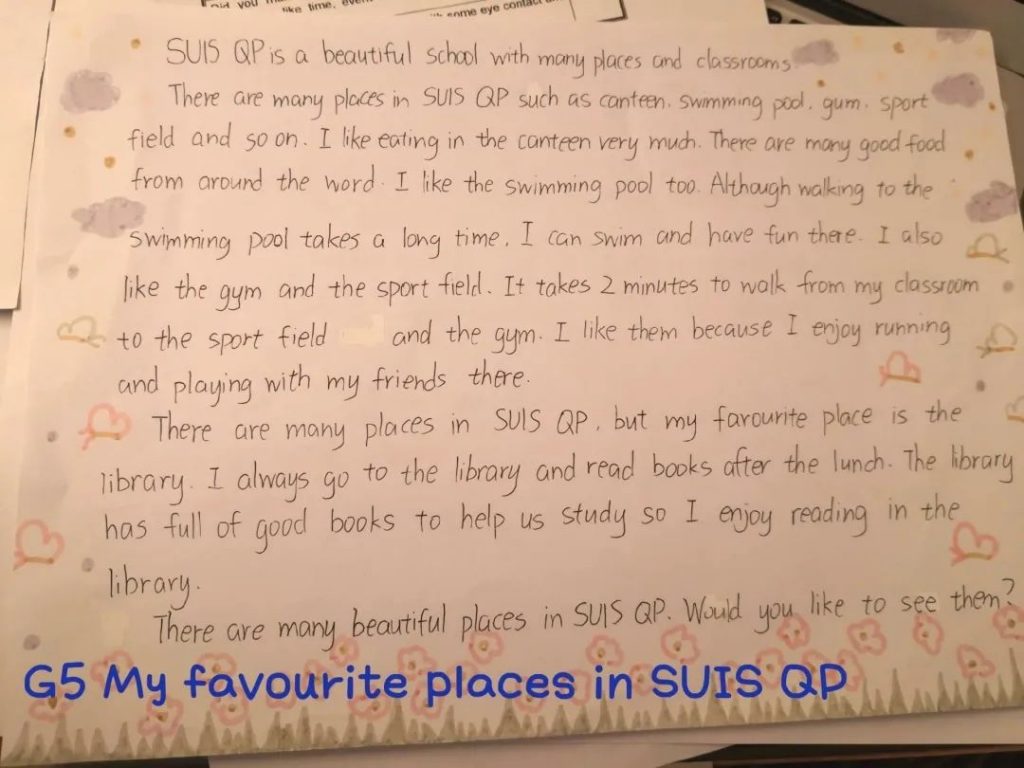 like time, even
some eye contact
SUIS QP is a beautiful school with many places and classrooms
There are many places in SUIS QP such as canteen, swimming pool, gum, sport
field and so on. I like eating in the canteen very much. There are many good food
from around the word. I like the swimming pool too. Although walking to the
swimming pool takes a long time, I can swim and have fun there. I also
like the gym and the sport field. It takes 2 minutes to walk from my classroom
to the sport field and the gym. I like them because I enjoy running
and playing with my friends there.
There are many places in SUIS QP, but my favourite place is the
library. I always go to the library and read books after the lunch. The library
has full of good books to help us study so I enjoy reading in the
library.
There are many beautiful places in SUIS QP. Would you like to see them?
G5 My favourite places in SUIS QP